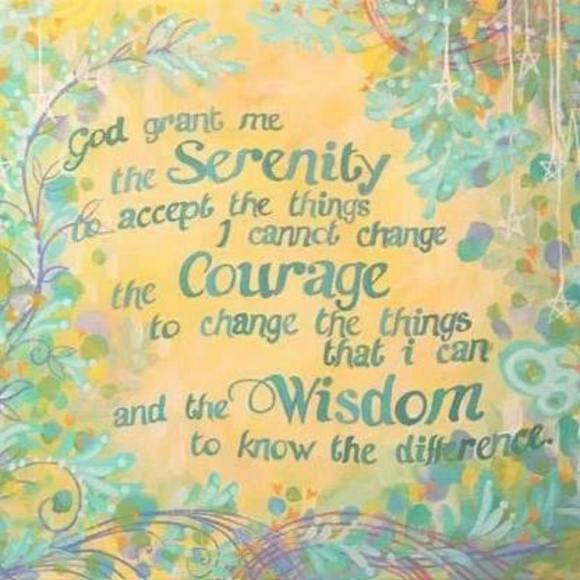 God grant me
the Serenity
to accept the things
I cannot change
the Courage
to change the things
that i can
and the Wisdom
to know the difference.